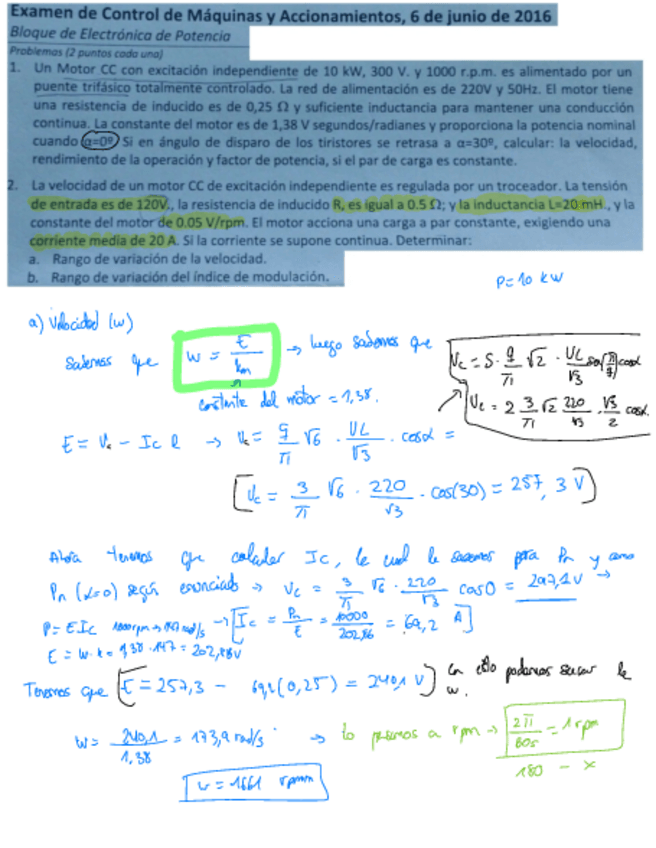 Examen de Control de Máquinas y Accionamientos, 6 de junio de 2016
Bloque de Electrónica de Potencia
Problemas (2 puntos cada uno)
1. Un Motor CC con excitación independiente de 10 kW, 300 V. y 1000 r.p.m. es alimentado por un
puente trifásico totalmente controlado. La red de alimentación es de 220V y 50Hz. El motor tiene
una resistencia de inducido es de 0,25 Ω y suficiente inductancia para mantener una conducción
continua. La constante del motor es de 1,38 V segundos/radianes y proporciona la potencia nominal
cuando α=0º Si en ángulo de disparo de los tiristores se retrasa a α=30º, calcular: la velocidad,
rendimiento de la operación y factor de potencia, si el par de carga es constante.
2. La velocidad de un motor CC de excitación independiente es regulada por un troceador. La tensión
de entrada es de 120V., la resistencia de inducido R, es igual a 0.5 Ω; y la inductancia L=20 mH., y la
constante del motor de 0.05 V/rpm. El motor acciona una carga a par constante, exigiendo una
corriente media de 20 A. Si la corriente se supone continua. Determinar:
a. Rango de variación de la velocidad.
b. Rango de variación del índice de modulación.
P=10 kW
a) Velocidad (w)
Sabemos que w = E/km → luego sabemos que
Uc = S · q/π √2 · UL/√3 sen(π/q) cosα
Uc = 2 3/π √2 220/√3 · √3/2 cosα
constante del motor = 1,38.
E = Uc - Ic R → Uc = q/π √6 · UL/√3 · cosα =
[Uc = 3/π √6 · 220/√3 · cos(30) = 257,3 V]
Ahora tenemos que calcular Ic, la cual la sacamos para Pn y como
Pn (α=0) según enunciado → Uc = 3/π √6 · 220/√3 cos0 = 297,1V →
P = E Ic 1000rpm → 147 rad/s → [Ic = Pn/E = 10000/202,86 = 69,2 A]
E = W·k = 1,38 · 147 = 202,86V
Tenemos que [E = 257,3 - 69,2(0,25) = 240,1 V] con esto podemos sacar la
w.
w = 240,1/1,38 = 173,9 rad/s → lo pasamos a rpm → 2π/60s = 1 rpm
180 - x
w = 1661 rpm